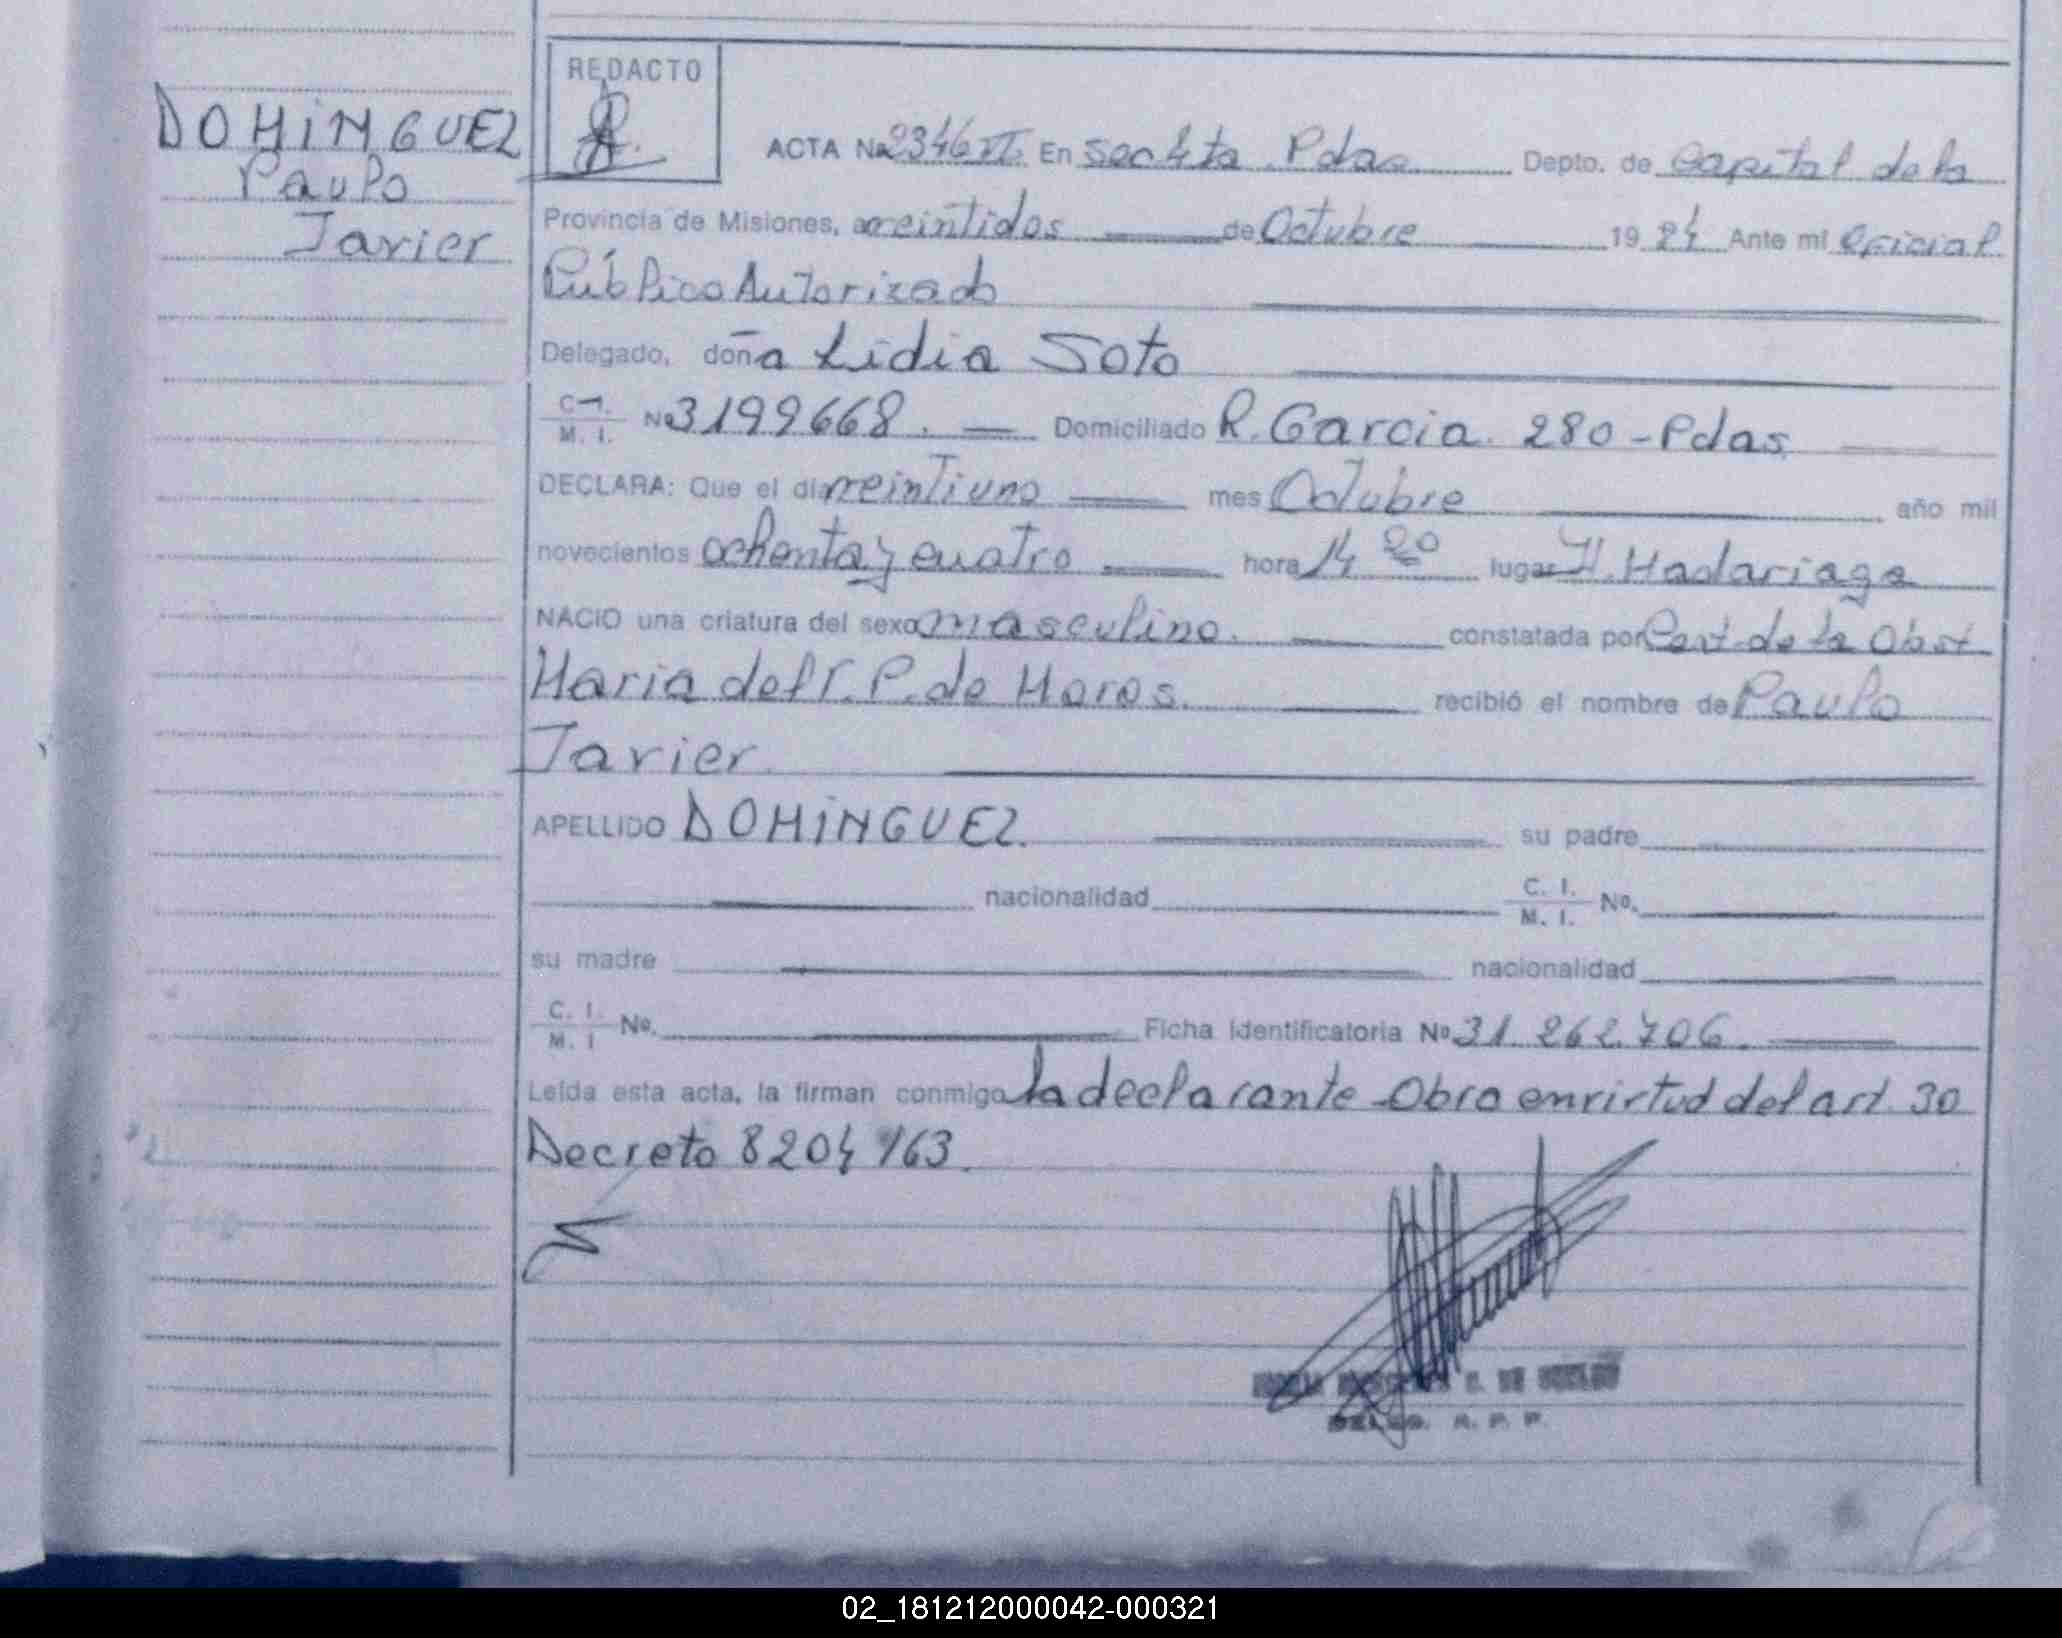 DOMINGUEZ
Paulo
Javier
REDACTO
ACTA Nº 2346 En Sec 4ta Pdas Depto. de Capital de la
Provincia de Misiones, a veintidos de Octubre 1984 Ante mi Oficial
Público Autorizado
Delegado, doña Lidia Soto
C. I. / M. I. Nº 3199668. Domiciliado R. Garcia 280 - Pdas
DECLARA: Que el día veintiuno mes Octubre año mil
novecientos ochenta y cuatro hora 14 20 lugar H. Madariaga
NACIO una criatura del sexo masculino. constatada por Cert. de la Obst
Maria del r. P. de Moros. recibió el nombre de Paulo
Javier
APELLIDO DOMINGUEZ su padre
nacionalidad C. I. / M. I. Nº.
su madre nacionalidad
C. I. / M. I Nº. Ficha Identificatoria Nº 31.262.706.
Leída esta acta, la firman conmigo la declarante Obra en virtud del art. 30
Decreto 8204/63.
DELEG. R. P. P.
02_181212000042-000321